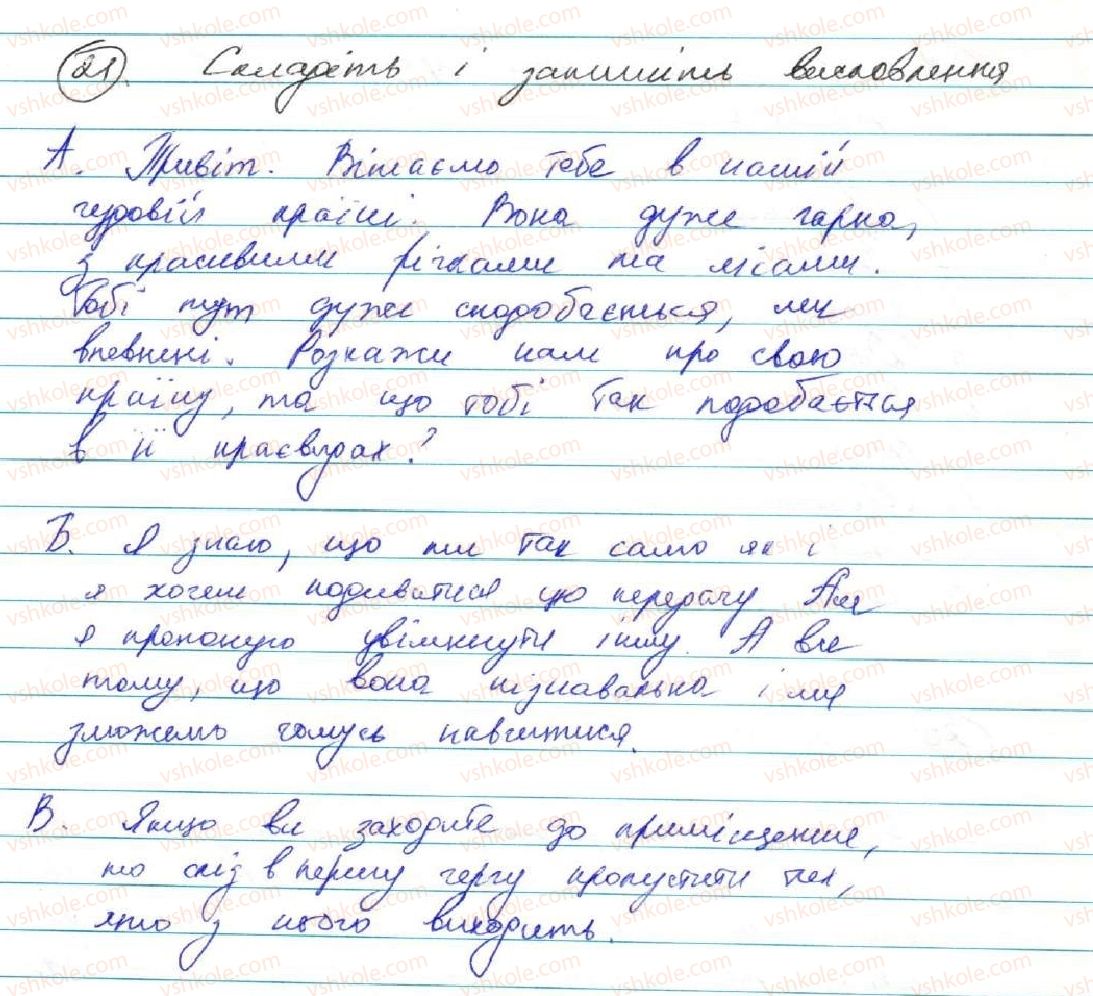 21. Складіть і запишіть висловлення
А. Привіт. Вітаємо тебе в нашій
чудовій країні. Вона дуже гарна,
з красивими річками та лісами.
Тобі тут дуже сподобається, ми
впевнені. Розкажи нам про свою
країну, та що тобі так подобається
в її краєвидах?
Б. Я знаю, що ти так само як і
я хочеш подивитися цю передачу Але
я пропоную увімкнути іншу. А все
тому, що вона пізнавальна і ми
зможемо чомусь навчитися.
В. Якщо ви заходите до приміщення,
то слід в першу чергу пропустити тих,
хто з нього виходить.